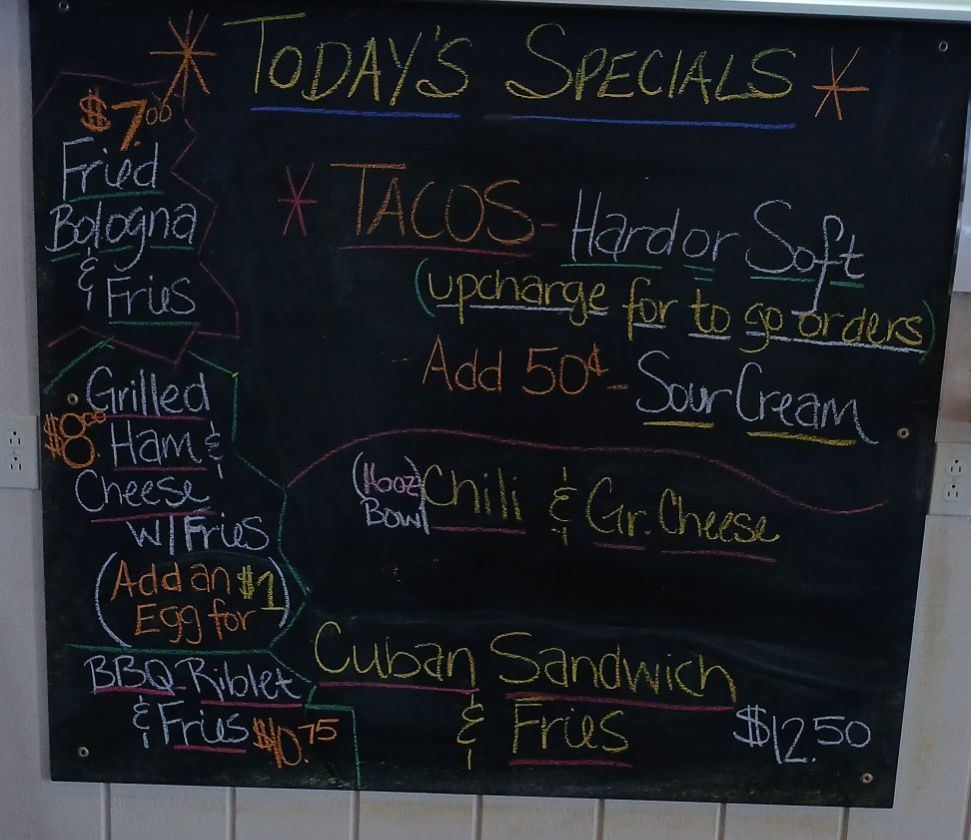 * TODAY'S SPECIALS *
$7.00
Fried
Bologna
& Fries
Grilled
$8.00 Ham &
Cheese
w/Fries
(Add an $1
Egg for)
BBQ Riblet
& Fries $10.75
* TACOS - Hard or Soft
(upcharge for to go orders)
Add 50¢ - Sour Cream
(16oz) Chili & Gr. Cheese
Bowl
Cuban Sandwich
& Fries $12.50